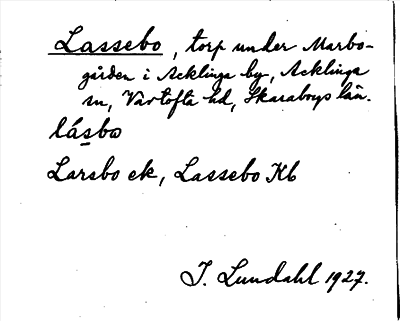 Lassebo, torp under Marbo-
gården i Acklinga by, Acklinga
sn, Vartofta hd, Skaraborgs län.
låsbo
Larsbo ek, Lassebo Kb
I. Lundahl 1927.